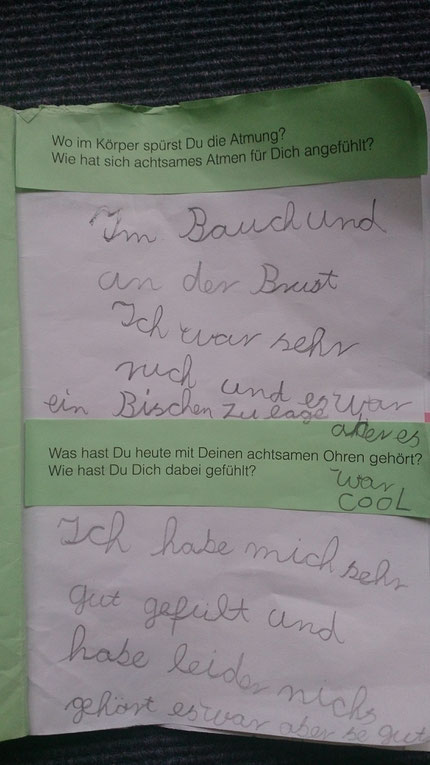 Wo im Körper spürst Du die Atmung?
Wie hat sich achtsames Atmen für Dich angefühlt?
Im Bauch und
an der Brust
Ich war sehr
ruch und es war
ein Bischen zu lage
aber es
war
COOL
Was hast Du heute mit Deinen achtsamen Ohren gehört?
Wie hast Du Dich dabei gefühlt?
Ich habe mich sehr
gut gefült und
habe leider nichs
gehört es war aber se gut